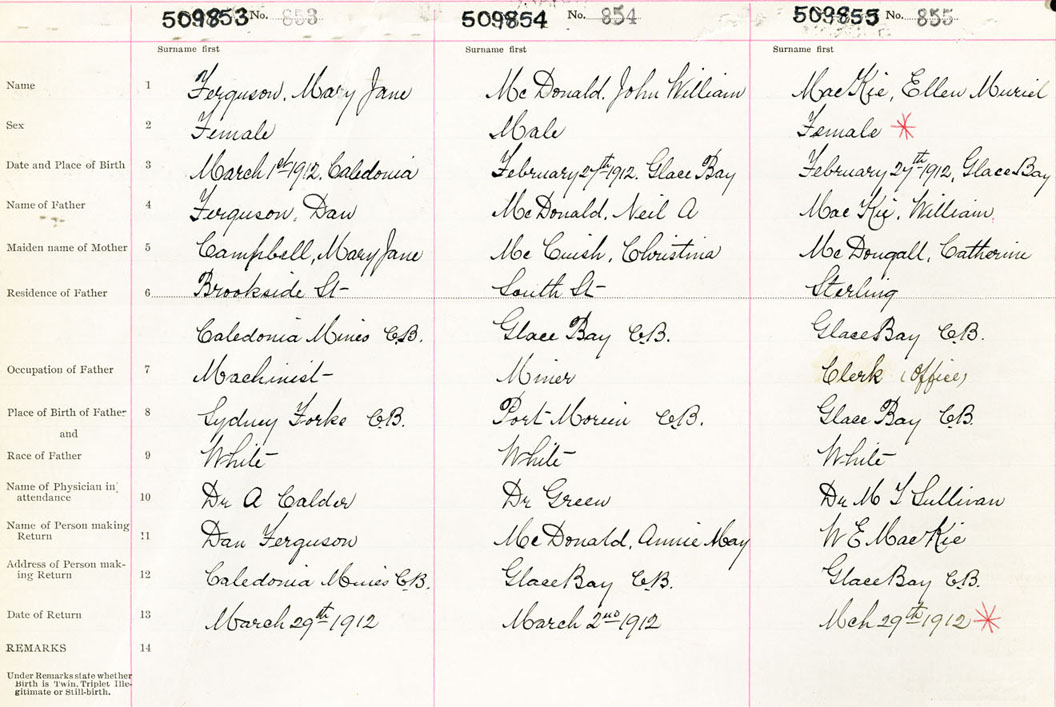 509853 No. 853 509854 No. 854 509855 No. 855
Surname first Surname first Surname first
Name 1 Ferguson, Mary Jane Mc Donald, John William MacKie, Ellen Muriel
Sex 2 Female Male Female *
Date and Place of Birth 3 March 1st 1912, Caledonia February 27th 1912, Glace Bay February 27th 1912, Glace Bay
Name of Father 4 Ferguson, Dan Mc Donald, Neil A MacKie, William
Maiden name of Mother 5 Campbell, Mary Jane Mc Cuish, Christina Mc Dougall, Catherine
Residence of Father 6 Brookside St South St Sterling
Caledonia Mines C.B. Glace Bay C.B. Glace Bay C.B.
Occupation of Father 7 Machinist Miner Clerk (Office)
Place of Birth of Father 8 Sydney Forks C.B. Port Morien C.B. Glace Bay C.B.
and
Race of Father 9 White White White
Name of Physician in
attendance 10 Dr A Calder Dr Green Dr M T Sullivan
Name of Person making
Return 11 Dan Ferguson Mc Donald, Annie May W E MacKie
Address of Person mak-
ing Return 12 Caledonia Mines C.B. Glace Bay C.B. Glace Bay C.B.
Date of Return 13 March 29th 1912 March 2nd 1912 Mch 29th 1912 *
REMARKS 14
Under Remarks state whether
Birth is Twin, Triplet, Ille-
gitimate or Still-birth.